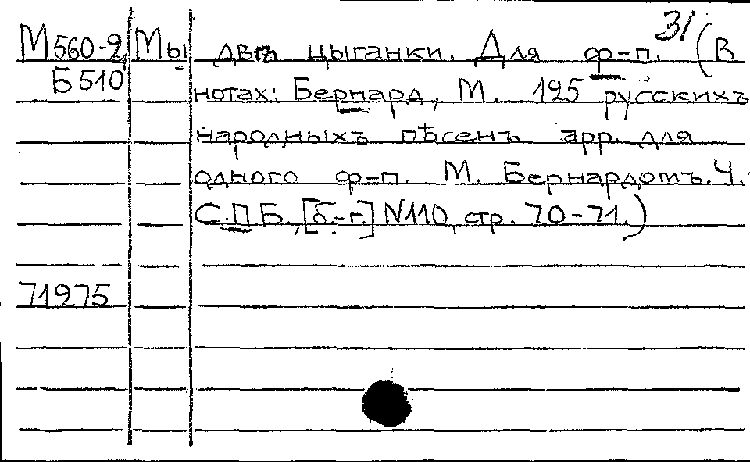 31
М560-2 Мы двѣ цыганки. Для ф-п. (В
Б510 нотах: Бернард, М. 125 русскихъ
народныхъ пѣсенъ арр. для
одного ф-п. М. Бернардомъ. Ч.
С.П.Б., [б.-г.] N110, стр. 70-71.)
71975